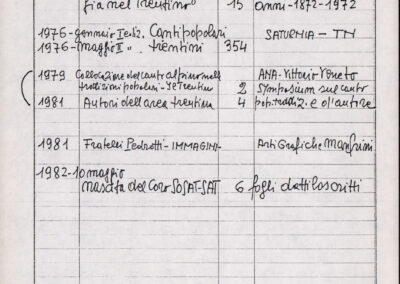 fia nel Trentino" 15 anni-1872-1972
1976-gennaio I ediz. Canti popolari SATURNIA - TN
1976-Maggio II " trentini 354
1979 Collocazione del canto alpino nelle ANA-Vittorio Veneto
tradizioni popolari - Trentino 2 Symposium sul canto
1981 Autori dell'area trentina 4 pop. tradiz. e d'autore
1981 Fratelli Pedrotti-IMMAGINI- Arti Grafiche Manfrini
1982-10 maggio
Nascita del Coro SOSAT-SAT 6 fogli dattiloscritti